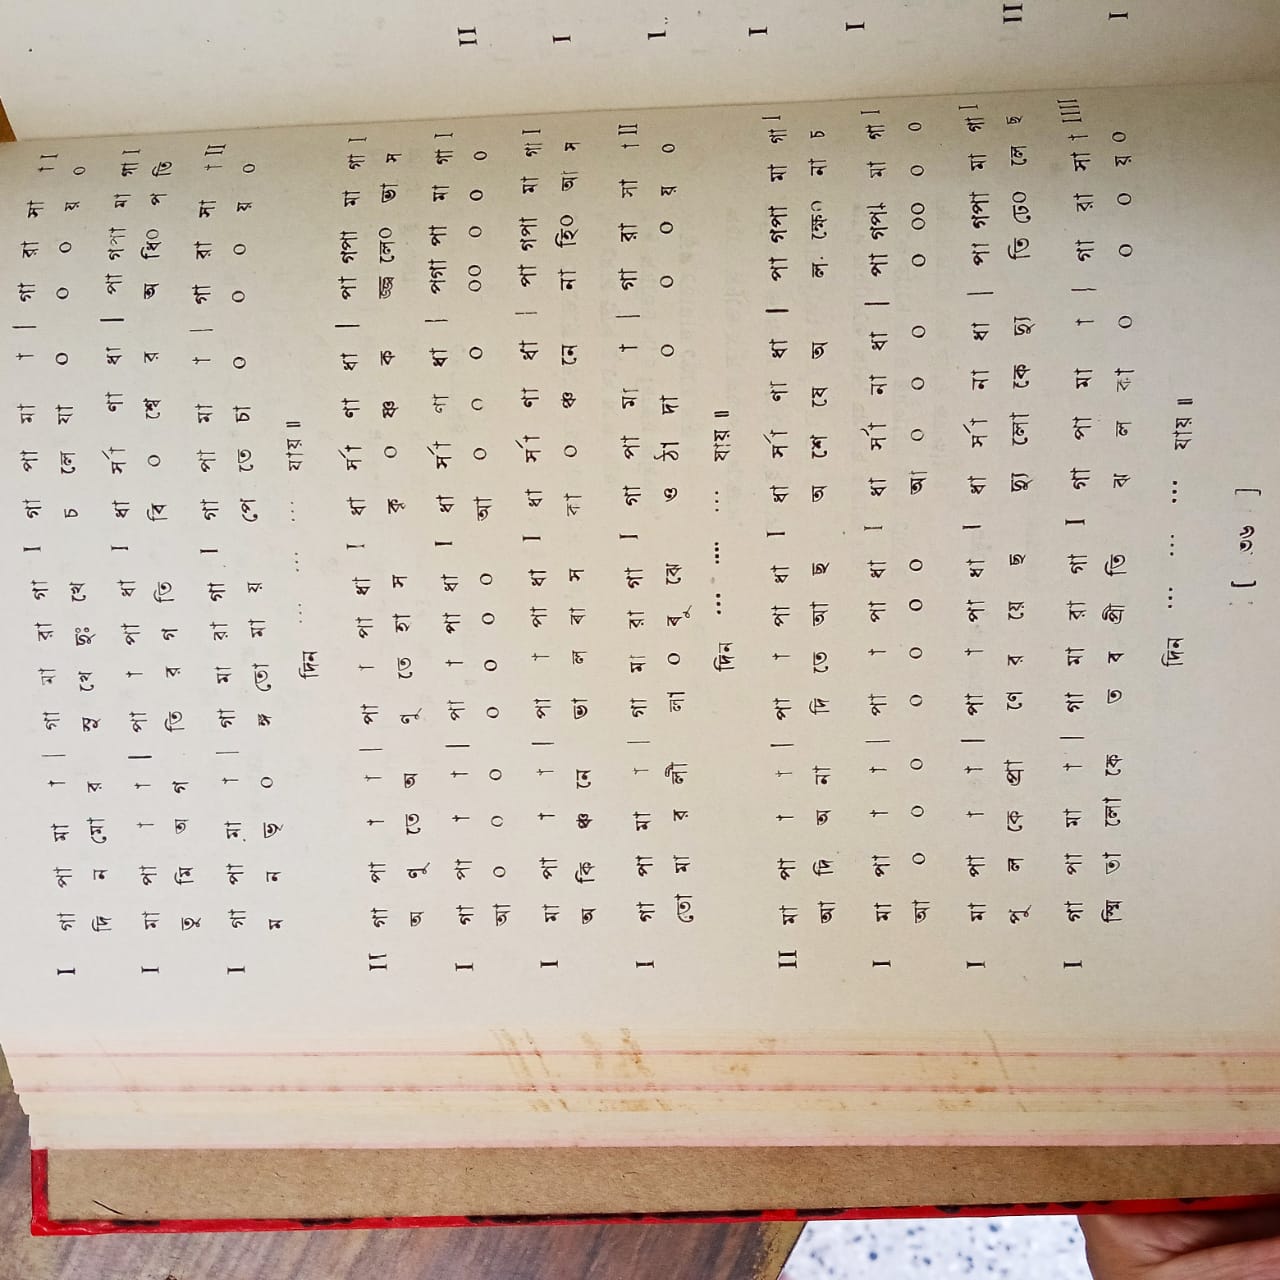 I গা পা মা † | গা মা রা গা I গা পা মা † | গা রা সা † I
দি ন মো র সু খে দুঃ খে চ লে যা ০ ০ ০ য় ০
I মা পা † † | পা † পা ধা I ধা র্সা ণা ধা | পা গপা মা গা I
তু মি অ গ তি র গ তি বি ০ শ্বে র অ ধি০ প তি
I গা পা মা † | গা মা রা গা I গা পা মা † | গা রা সা † II
ম ন ভৃ ০ ঙ্গ তো মা য় পে তে চা ০ ০ ০ য় ০
দিন ... ... ... যায় ॥
II গা পা † † | পা † পা ধা I ধা র্সা ণা ধা | পা গপা মা গা I
অ ণু তে অ ণু তে হা স রু ০ ঞ্চ ক জ্জ লে০ ভা স
I গা পা † † | পা † পা ধা I ধা র্সা ণা ধা | পগা পা মা গা I
আ ০ ০ ০ ০ ০ ০ ০ আ ০ ০ ০ ০০ ০ ০ ০
I মা পা † † | পা † পা ধা I ধা র্সা ণা র্ধা | পা গপা মা গা I
অ কি ঞ্চ নে ভা ল বা স কা ০ ঞ্চ নে না হি০ আ স
I গা পা মা † | গা মা রা গা I গা পা মা † | গা রা সা † II
তো মা র লী লা ০ বু ঝে ও ঠা দা ০ ০ ০ য় ০
দিন ... .... ... যায় ॥
II মা পা † † | পা † পা ধা I ধা র্সা ণা ধা | পা গপা মা গা I
আ দি অ না দি তে আ ছ অ শে ষে অ ল ক্ষে০ না চ
I মা পা † † | পা † পা ধা I ধা র্সা না ধা | পা গপা মা গা I
আ ০ ০ ০ ০ ০ ০ ০ আ ০ ০ ০ ০ ০০ ০ ০
I মা পা † † | পা † পা ধা I ধা র্সা না ধা | পা গপা মা গা I
পু ল কে প্রা ণে র য়ে ছ দ্যু লো কে দ্যু তি ঢে০ লে ছ
I গা পা মা † | গা মা রা গা I গা পা মা † | গা রা সা † IIII
স্মি তা লো কে ত ব প্রী তি ঝ ল কা ০ ০ ০ য় ০
দিন ... ... ... যায় ॥
[ ৩৬ ]
II
I
I..
I
I
II
I